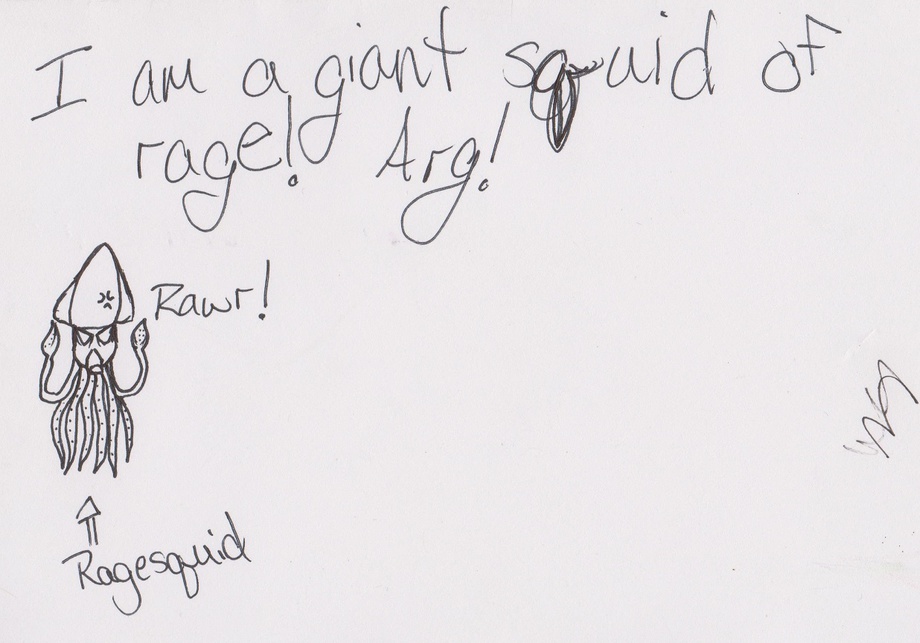 I am a giant squid of
rage! Arg!
Rawr!
Ragesquid